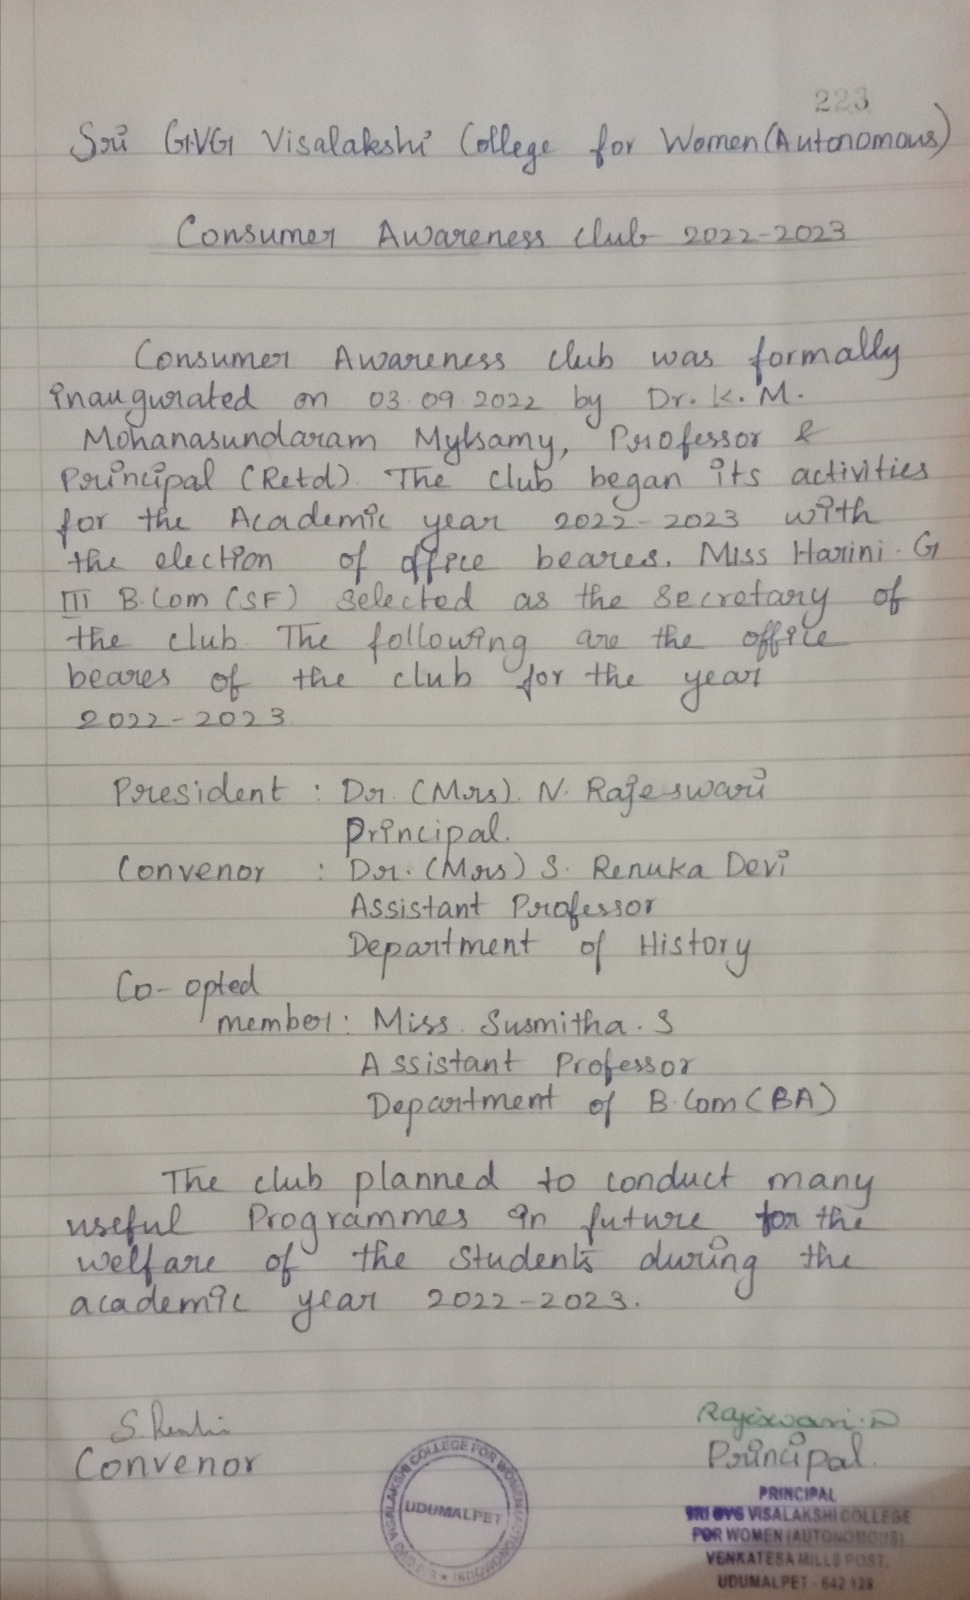 223
Sri G.V.G Visalakshi College for Women (Autonomous)
Consumer Awareness club 2022-2023
Consumer Awareness club was formally
inaugurated on 03.09.2022 by Dr. K. M.
Mohanasundaram Mylsamy, Professor &
Principal (Retd). The club began its activities
for the Academic year 2022-2023 with
the election of office beares. Miss Harini. G
III B.Com (SF) Selected as the Secretary of
the club. The following are the office
beares of the club for the year
2022-2023.
President : Dr. (Mrs). N. Rajeswari
Principal.
Convenor : Dr. (Mrs) S. Renuka Devi
Assistant Professor
Department of History
Co-opted
member: Miss. Susmitha. S
Assistant Professor
Department of B.Com (BA)
The club planned to conduct many
useful Programmes in future for the
welfare of the Students during the
academic year 2022-2023.
Rajeswari. N
Convenor
Principal.
VISALAKSHI COLLEGE FOR WOMEN (AUTONOMOUS)
UDUMALPET
PRINCIPAL
SRI GVG VISALAKSHI COLLEGE
FOR WOMEN (AUTONOMOUS)
VENKATESA MILLS POST,
UDUMALPET - 642 128